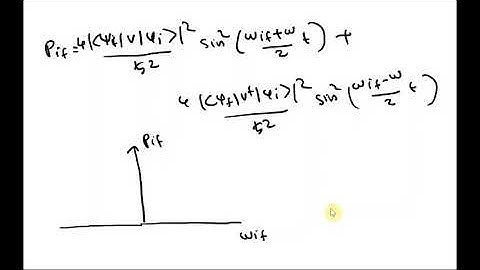 Pif = 4|<ψf|V|ψi>|² / ħ² sin² (ωif+ω / 2 t) +
4 |<ψf|V†|ψi>|² / ħ² sin² (ωif-ω / 2 t)
Pif
ωif